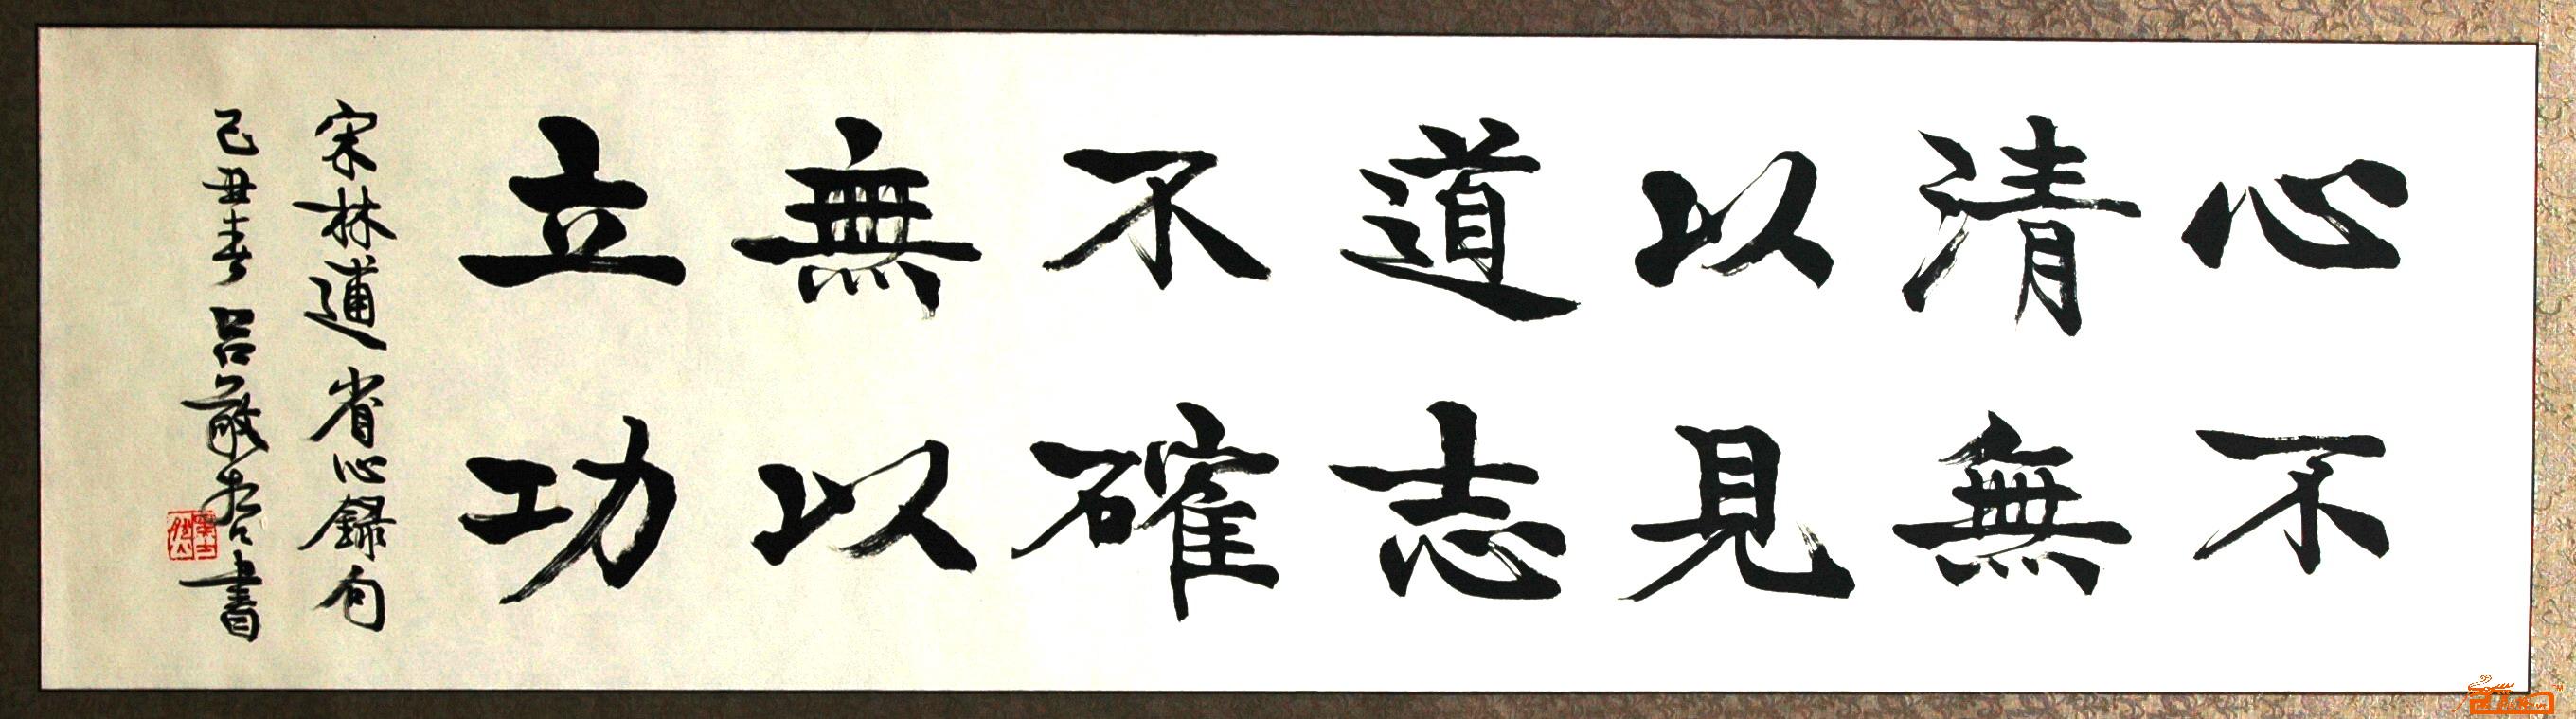 心不
清無
以見
道志
不確
無以
立功
宋林逋省心録句
己丑春吕敬書